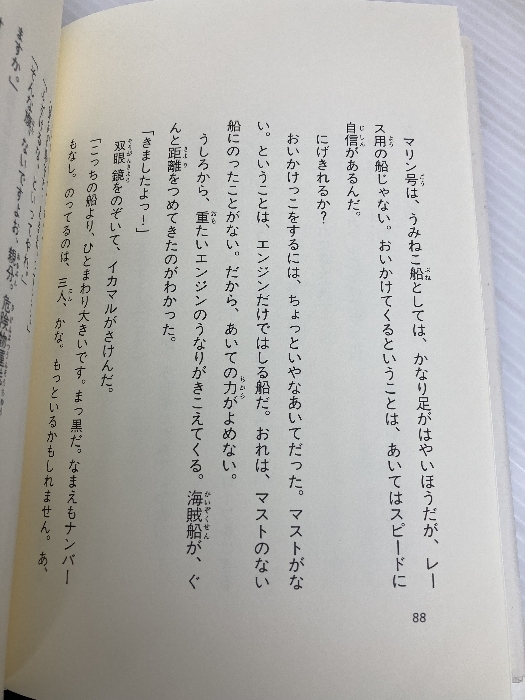 マリン号は、うみねこ船としては、かなり足がはやいほうだが、レー
ス用の船じゃない。おいかけてくるということは、あいてはスピードに
自信があるんだ。
にげきれるか?
おいかけっこをするには、ちょっといやなあいてだった。マストがな
い。ということは、エンジンだけではしる船だ。おれは、マストのない
船にのったことがない。だから、あいての力がよめない。
うしろから、重たいエンジンのうなりがきこえてくる。海賊船が、ぐ
んと距離をつめてきたのがわかった。
「きましたよっ!」
双眼鏡をのぞいて、イカマルがさけんだ。
「こっちの船より、ひとまわり大きいです。まっ黒だ。なまえもナンバー
もなし。のってるのは、三人、かな。もっといるかもしれません。あ、
88
ますか。」